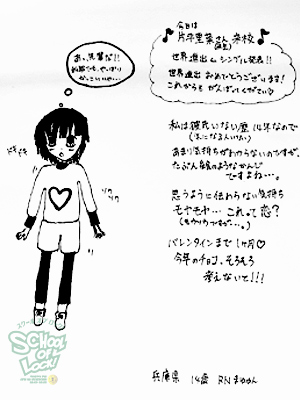 今日は
片平里菜さん来校
世界進出&シングル発表!!
世界進出おめでとうございます!
これからもがんばってください♡
あっ、先輩だ!!
やっぱり
かっこいいなぁ…
ドキ
ドキ
私は彼氏いない歴14年なので
あまり気持ちがわからないのですが、
たぶん絵のようなかんじ
ですよね…。
思うように伝わらない気持ち
モヤモヤ…これって恋?
バレンタインまで1か月♡
今年のチョコ、そろそろ
考えないと!!!
SCHOOL
OF LOCK!
兵庫県 14歳 RN まゆゆん